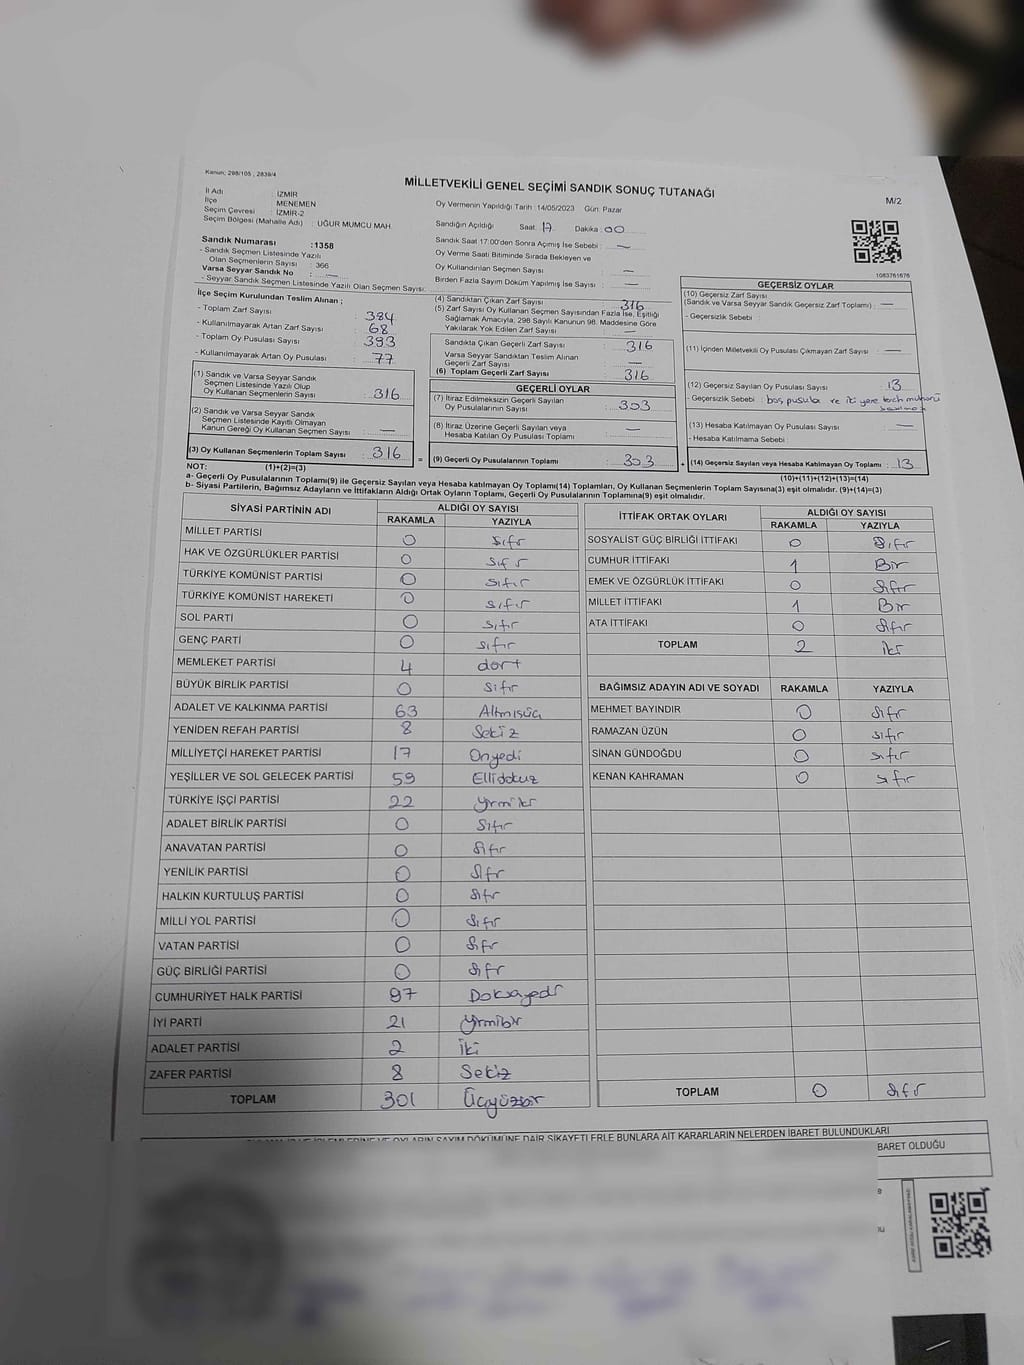 Kanun; 298/105 , 2839/4
MİLLETVEKİLİ GENEL SEÇİMİ SANDIK SONUÇ TUTANAĞI
M/2
İl Adı : İZMİR
İlçe : MENEMEN
Seçim Çevresi : İZMİR-2
Seçim Bölgesi (Mahalle Adı) : UĞUR MUMCU MAH.
Oy Vermenin Yapıldığı Tarih :14/05/2023 Gün: Pazar
Sandığın Açıldığı Saat: 17 Dakika: 00
Sandık Saat 17:00'den Sonra Açımış İse Sebebi : —
Oy Verme Saati Bitiminde Sırada Bekleyen ve
Oy Kullandırılan Seçmen Sayısı : —
Birden Fazla Sayım Döküm Yapılmış İse Sayısı : —
Sandık Numarası :1358
- Sandık Seçmen Listesinde Yazılı
Olan Seçmenlerin Sayısı : 366
Varsa Seyyar Sandık No : —
- Seyyar Sandık Seçmen Listesinde Yazılı Olan Seçmen Sayısı:
1083761676
İlçe Seçim Kurulundan Teslim Alınan ;
- Toplam Zarf Sayısı : 384
- Kullanılmayarak Artan Zarf Sayısı : 68
- Toplam Oy Pusulası Sayısı : 393
- Kullanılmayarak Artan Oy Pusulası : 77
(1) Sandık ve Varsa Seyyar Sandık
Seçmen Listesinde Yazılı Olup
Oy Kullanan Seçmenlerin Sayısı : 316
(2) Sandık ve Varsa Seyyar Sandık
Seçmen Listesinde Kayıtlı Olmayan
Kanun Gereği Oy Kullanan Seçmen Sayısı : —
(3) Oy Kullanan Seçmenlerin Toplam Sayısı : 316
(4) Sandıktan Çıkan Zarf Sayısı : 316
(5) Zarf Sayısı Oy Kullanan Seçmen Sayısından Fazla İse, Eşitliği
Sağlamak Amacıyla; 298 Sayılı Kanunun 98. Maddesine Göre
Yakılarak Yok Edilen Zarf Sayısı : —
Sandıkta Çıkan Geçerli Zarf Sayısı : 316
Varsa Seyyar Sandıktan Teslim Alınan
Geçerli Zarf Sayısı : —
(6) Toplam Geçerli Zarf Sayısı : 316
GEÇERLİ OYLAR
(7) İtiraz Edilmeksizin Geçerli Sayılan
Oy Pusulalarının Sayısı : 303
(8) İtiraz Üzerine Geçerli Sayılan veya
Hesaba Katılan Oy Pusulası Toplamı : —
= (9) Geçerli Oy Pusulalarının Toplamı : 303
GEÇERSİZ OYLAR
(10) Geçersiz Zarf Sayısı
(Sandık ve Varsa Seyyar Sandık Geçersiz Zarf Toplamı) : —
- Geçersizlik Sebebi :
(11) İçinden Milletvekili Oy Pusulası Çıkmayan Zarf Sayısı : —
(12) Geçersiz Sayılan Oy Pusulası Sayısı : 13
- Geçersizlik Sebebi : boş pusula ve iki yere tercih mührü
(13) Hesaba Katılmayan Oy Pusulası Sayısı : —
- Hesaba Katılmama Sebebi :
+ (14) Geçersiz Sayılan veya Hesaba Katılmayan Oy Toplamı : 13
NOT: (1)+(2)=(3)
(10)+(11)+(12)+(13)=(14)
a- Geçerli Oy Pusulaları Toplamı(9) ile Geçersiz Sayılan veya Hesaba katılmayan Oy Toplamı(14) Toplamları, Oy Kullanan Seçmenlerin Toplam Sayısına(3) eşit olmalıdır. (9)+(14)=(3)
b- Siyasi Partilerin, Bağımsız Adayların ve İttifakların Aldığı Ortak Oyların Toplamı, Geçerli Oy Pusulalarının Toplamına(9) eşit olmalıdır.
SİYASİ PARTİNİN ADI ALDIĞI OY SAYISI
RAKAMLA YAZIYLA
MİLLET PARTİSİ 0 sıfır
HAK VE ÖZGÜRLÜKLER PARTİSİ 0 sıfır
TÜRKİYE KOMÜNİST PARTİSİ 0 sıfır
TÜRKİYE KOMÜNİST HAREKETİ 0 sıfır
SOL PARTİ 0 sıfır
GENÇ PARTİ 0 sıfır
MEMLEKET PARTİSİ 4 dört
BÜYÜK BİRLİK PARTİSİ 0 sıfır
ADALET VE KALKINMA PARTİSİ 63 Altmışüç
YENİDEN REFAH PARTİSİ 8 Sekiz
MİLLİYETÇİ HAREKET PARTİSİ 17 Onyedi
YEŞİLLER VE SOL GELECEK PARTİSİ 59 Ellidokuz
TÜRKİYE İŞÇİ PARTİSİ 22 Yirmiki
ADALET BİRLİK PARTİSİ 0 Sıfır
ANAVATAN PARTİSİ 0 Sıfır
YENİLİK PARTİSİ 0 Sıfır
HALKIN KURTULUŞ PARTİSİ 0 Sıfır
MİLLİ YOL PARTİSİ 0 Sıfır
VATAN PARTİSİ 0 Sıfır
GÜÇ BİRLİĞİ PARTİSİ 0 Sıfır
CUMHURİYET HALK PARTİSİ 97 Doksanyedi
İYİ PARTİ 21 Yirmibir
ADALET PARTİSİ 2 İki
ZAFER PARTİSİ 8 Sekiz
TOPLAM 301 Üçyüzbir
İTTİFAK ORTAK OYLARI ALDIĞI OY SAYISI
RAKAMLA YAZIYLA
SOSYALİST GÜÇ BİRLİĞİ İTTİFAKI 0 Sıfır
CUMHUR İTTİFAKI 1 Bir
EMEK VE ÖZGÜRLÜK İTTİFAKI 0 Sıfır
MİLLET İTTİFAKI 1 Bir
ATA İTTİFAKI 0 Sıfır
TOPLAM 2 iki
BAĞIMSIZ ADAYIN ADI VE SOYADI RAKAMLA YAZIYLA
MEHMET BAYINDIR 0 Sıfır
RAMAZAN ÜZÜN 0 sıfır
SİNAN GÜNDOĞDU 0 sıfır
KENAN KAHRAMAN 0 sıfır
TOPLAM 0 Sıfır
OYLARIN SAYIM DÖKÜMÜNE DAİR ŞİKAYETLERLE BUNLARA AİT KARARLARIN NELERDEN İBARET BULUNDUKLARI
BARET OLDUĞU